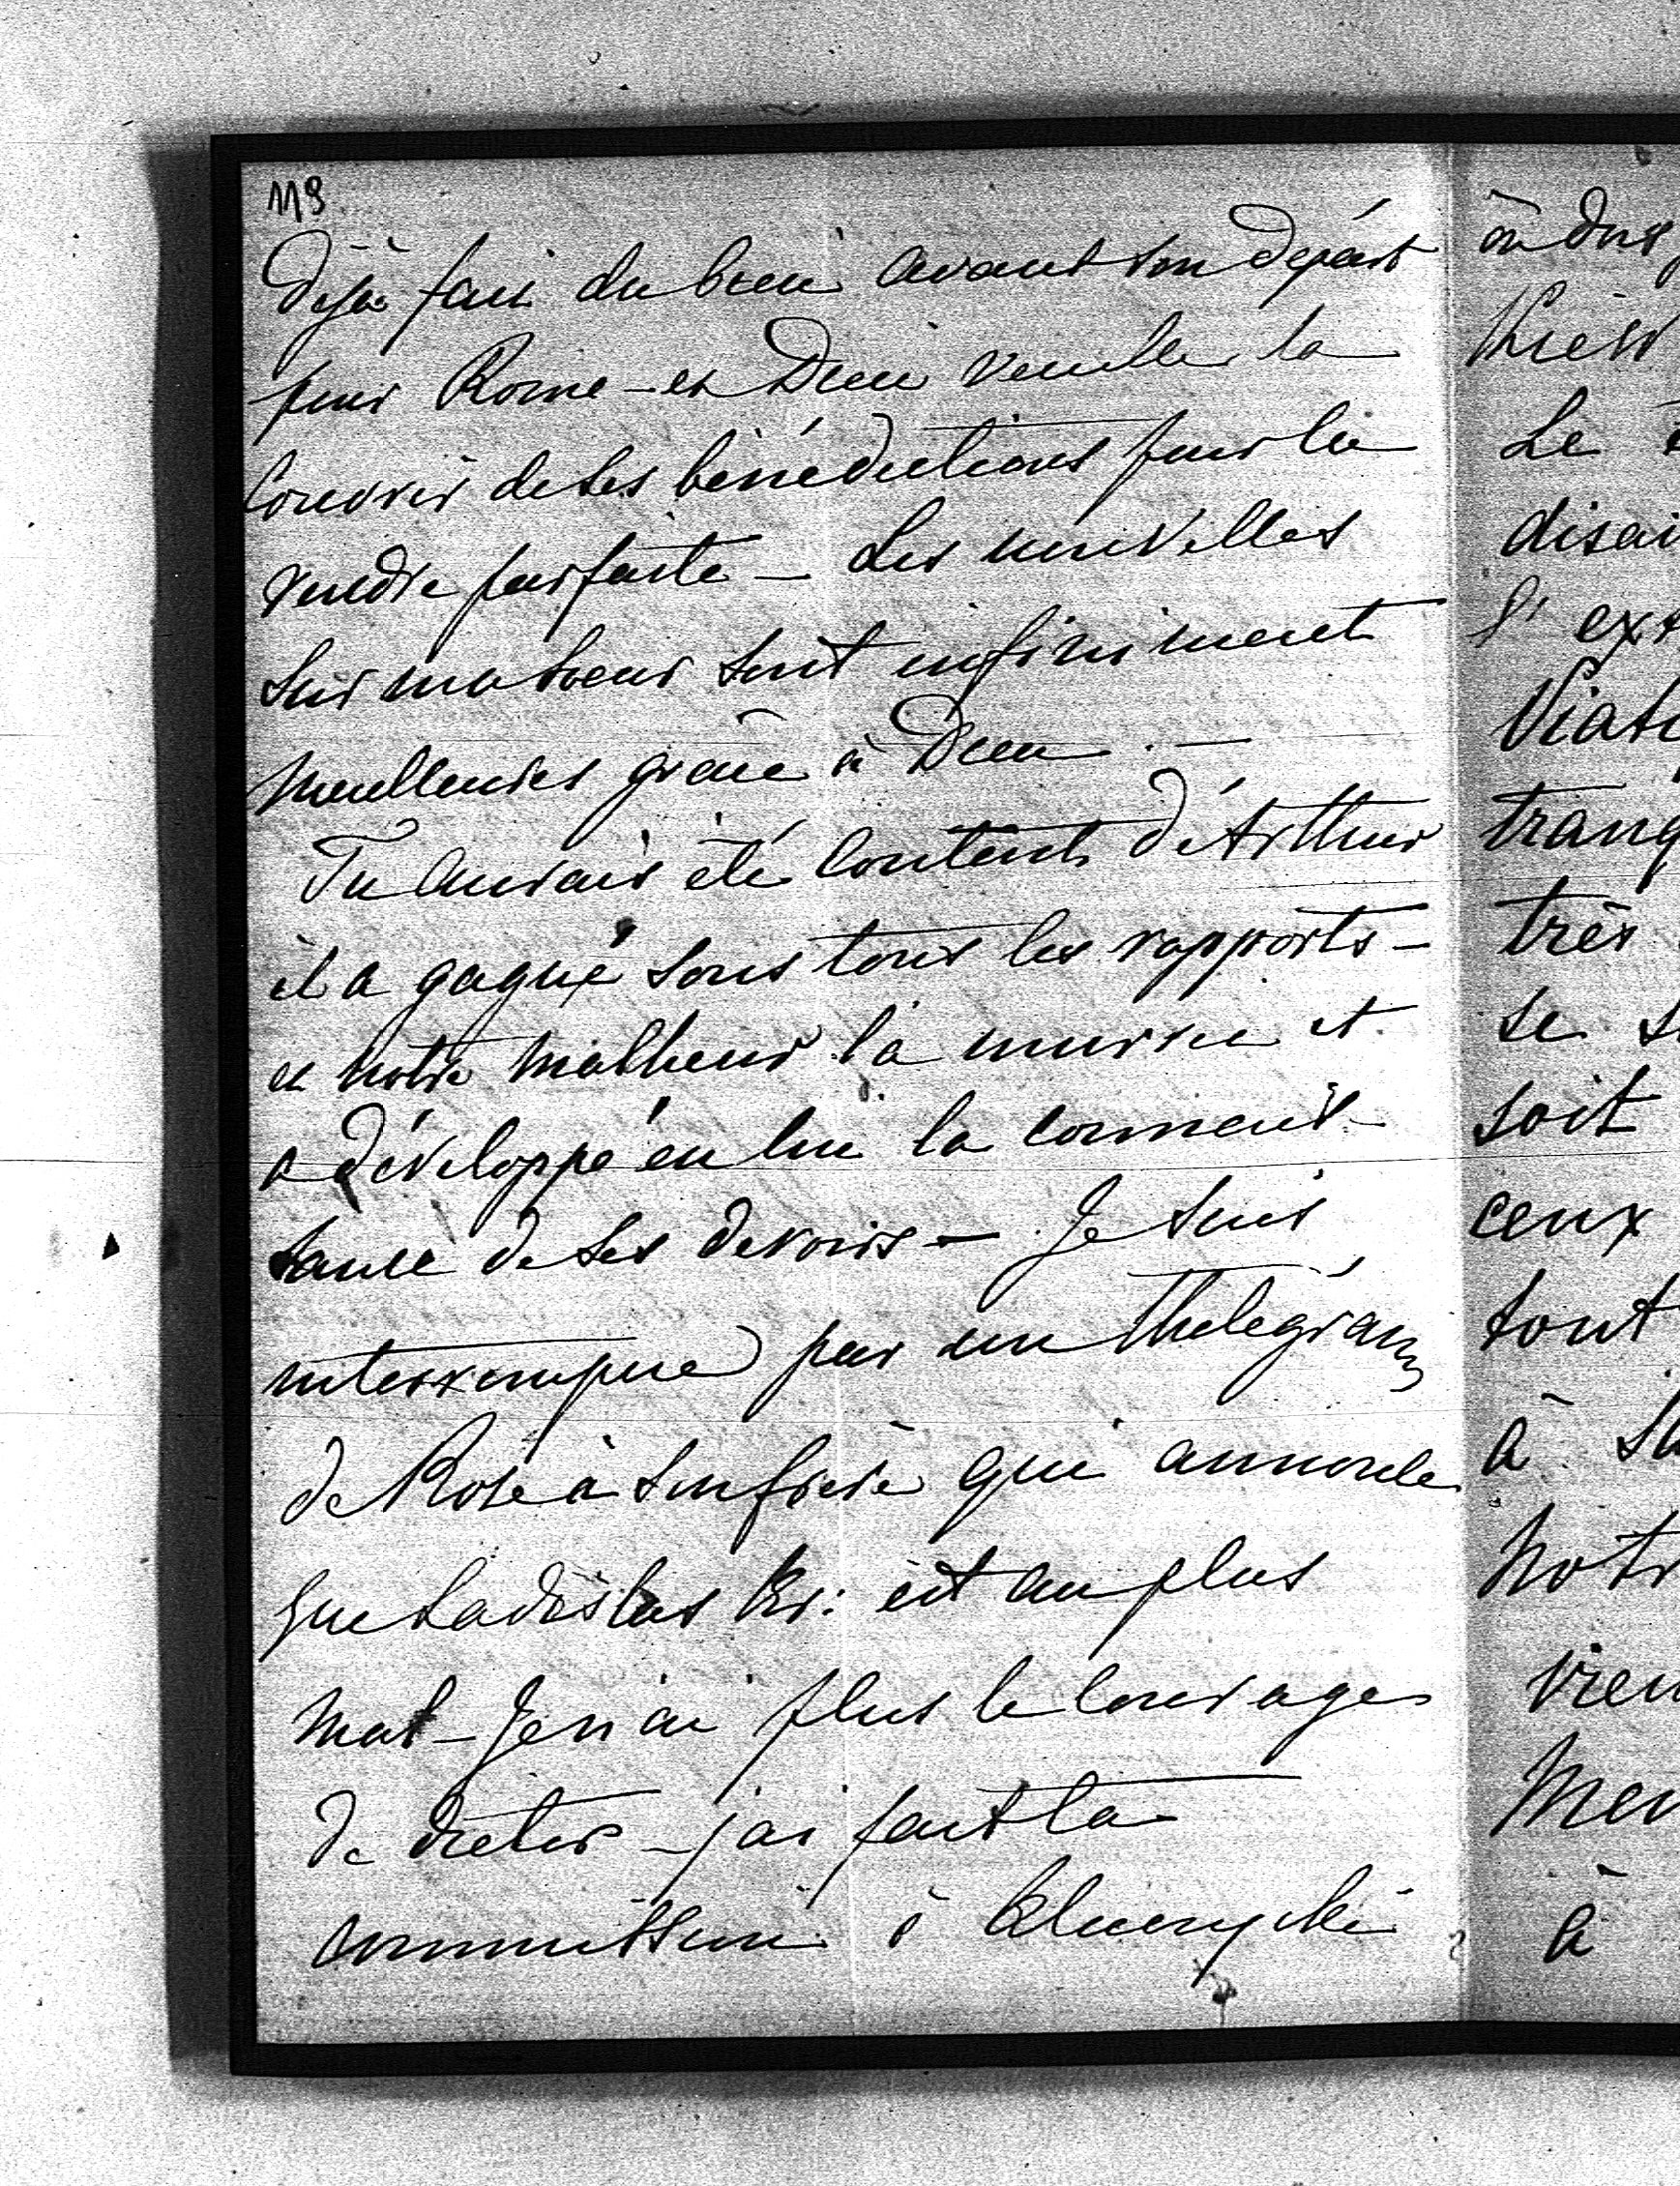 118
déjà fait du bien avant son départ
pour Rome - et Dieu veuille la
couvrir de ses bénédictions pour la
rendre parfaite - Les nouvelles
sur ma soeur sont infiniment
meilleures grâce à Dieu. -
Tu aurais été contente d'Arthur
il a gagné sous tous les rapports -
et notre malheur l'a muri et
a développé en lui la connais-
sance de ses devoirs - Je suis
interrompue par un thelegram
de Rose à son frère qui annonce
que Ladislas Kr: est au plus
mal - Je n'ai plus le courage
de dicter - j'ai fait la
commission à
Kiew
Le
disai
l'ex
Viati
tranq
très
se s
soit
ceux
tout
à sa
notr
vien
men
à